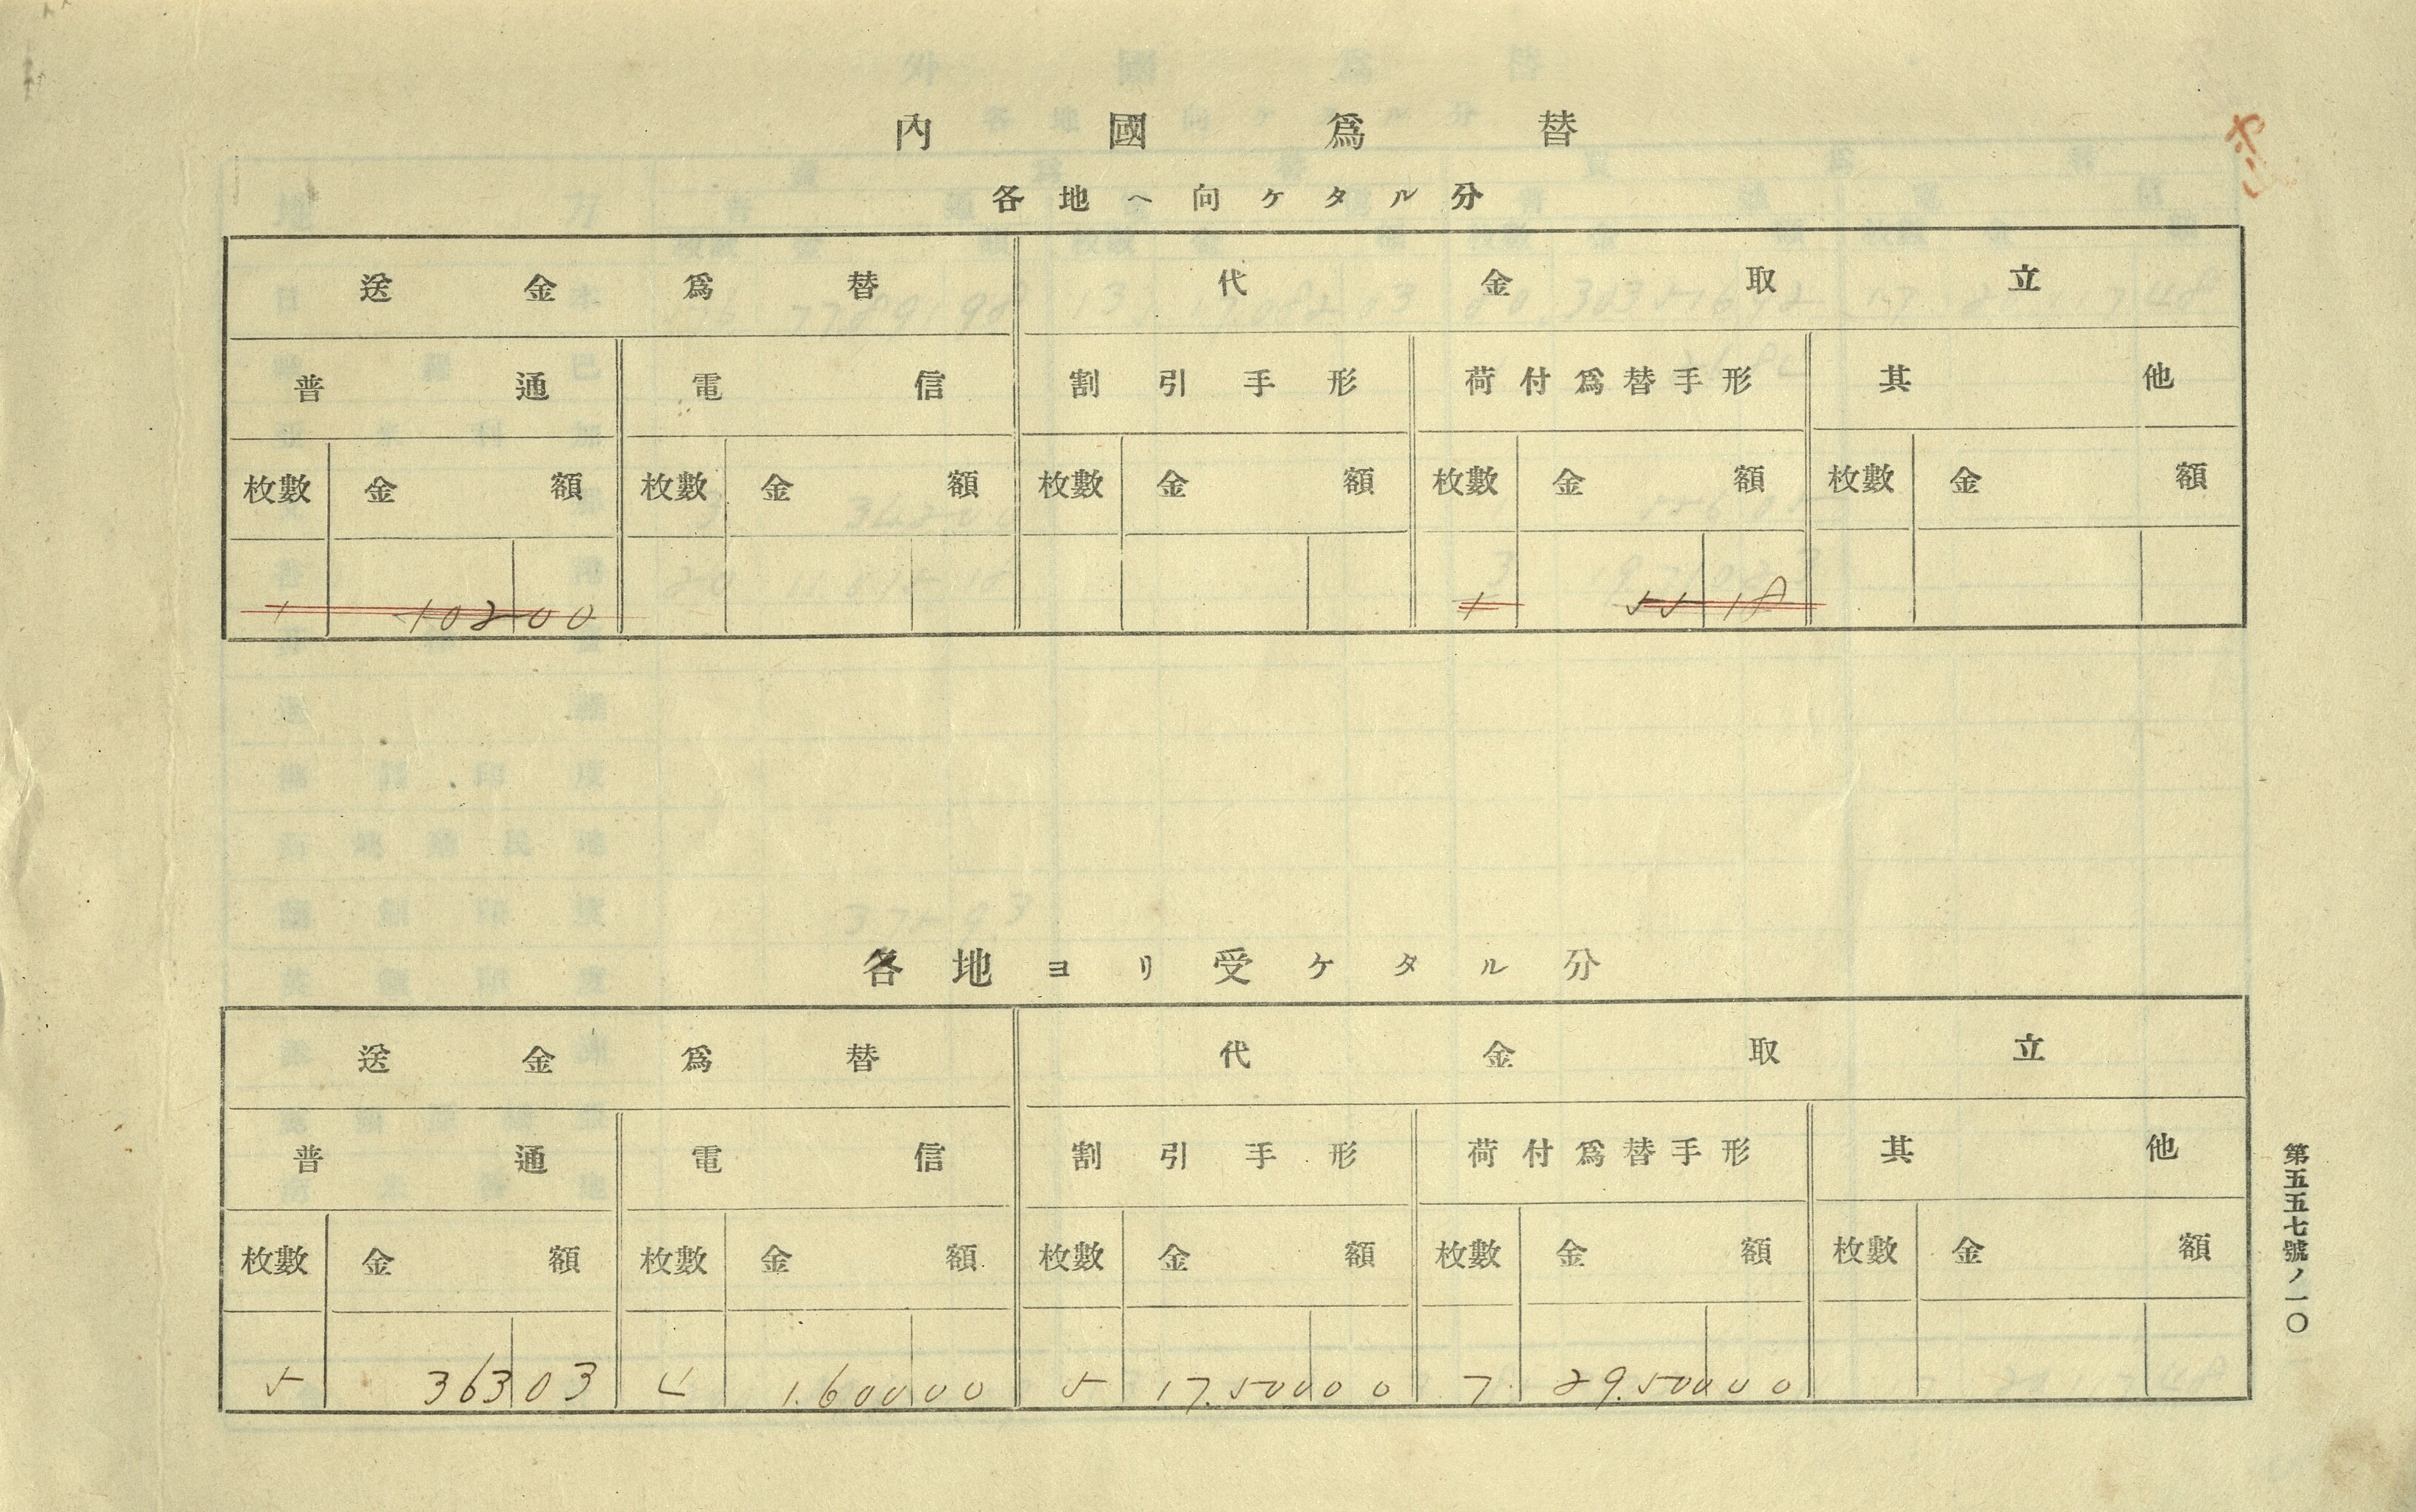 內國爲替
各地ヘ向ケタル分
送金爲替 代金取立
普通 電信 割引手形 荷付爲替手形 其他
枚數 金額 枚數 金額 枚數 金額 枚數 金額 枚數 金額
1 102 00 1 55 18
各地ヨリ受ケタル分
送金爲替 代金取立
普通 電信 割引手形 荷付爲替手形 其他
枚數 金額 枚數 金額 枚數 金額 枚數 金額 枚數 金額
5 363 03 4 1.600 00 5 17.500 00 7 29.500 00
第五五七號ノ一〇